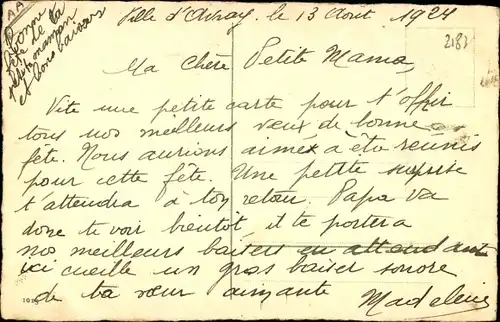 AA
Bonne
fête de la
petite maman
et bons baisers
Ville d'Avray. le 13 Août 1924
2183
Ma Chère Petite Mama,
Vite une petite carte pour t'offrir
tous nos meilleurs vœux de bonne
fête. Nous aurions aimé a être réunis
pour cette fête. Une petite surprise
t'attendra à ton retour. Papa va
donc te voir bientôt, il te portera
nos meilleurs baisers en attendant
ici cueille un gros baiser sonore
de ta sœur aimante Madeleine